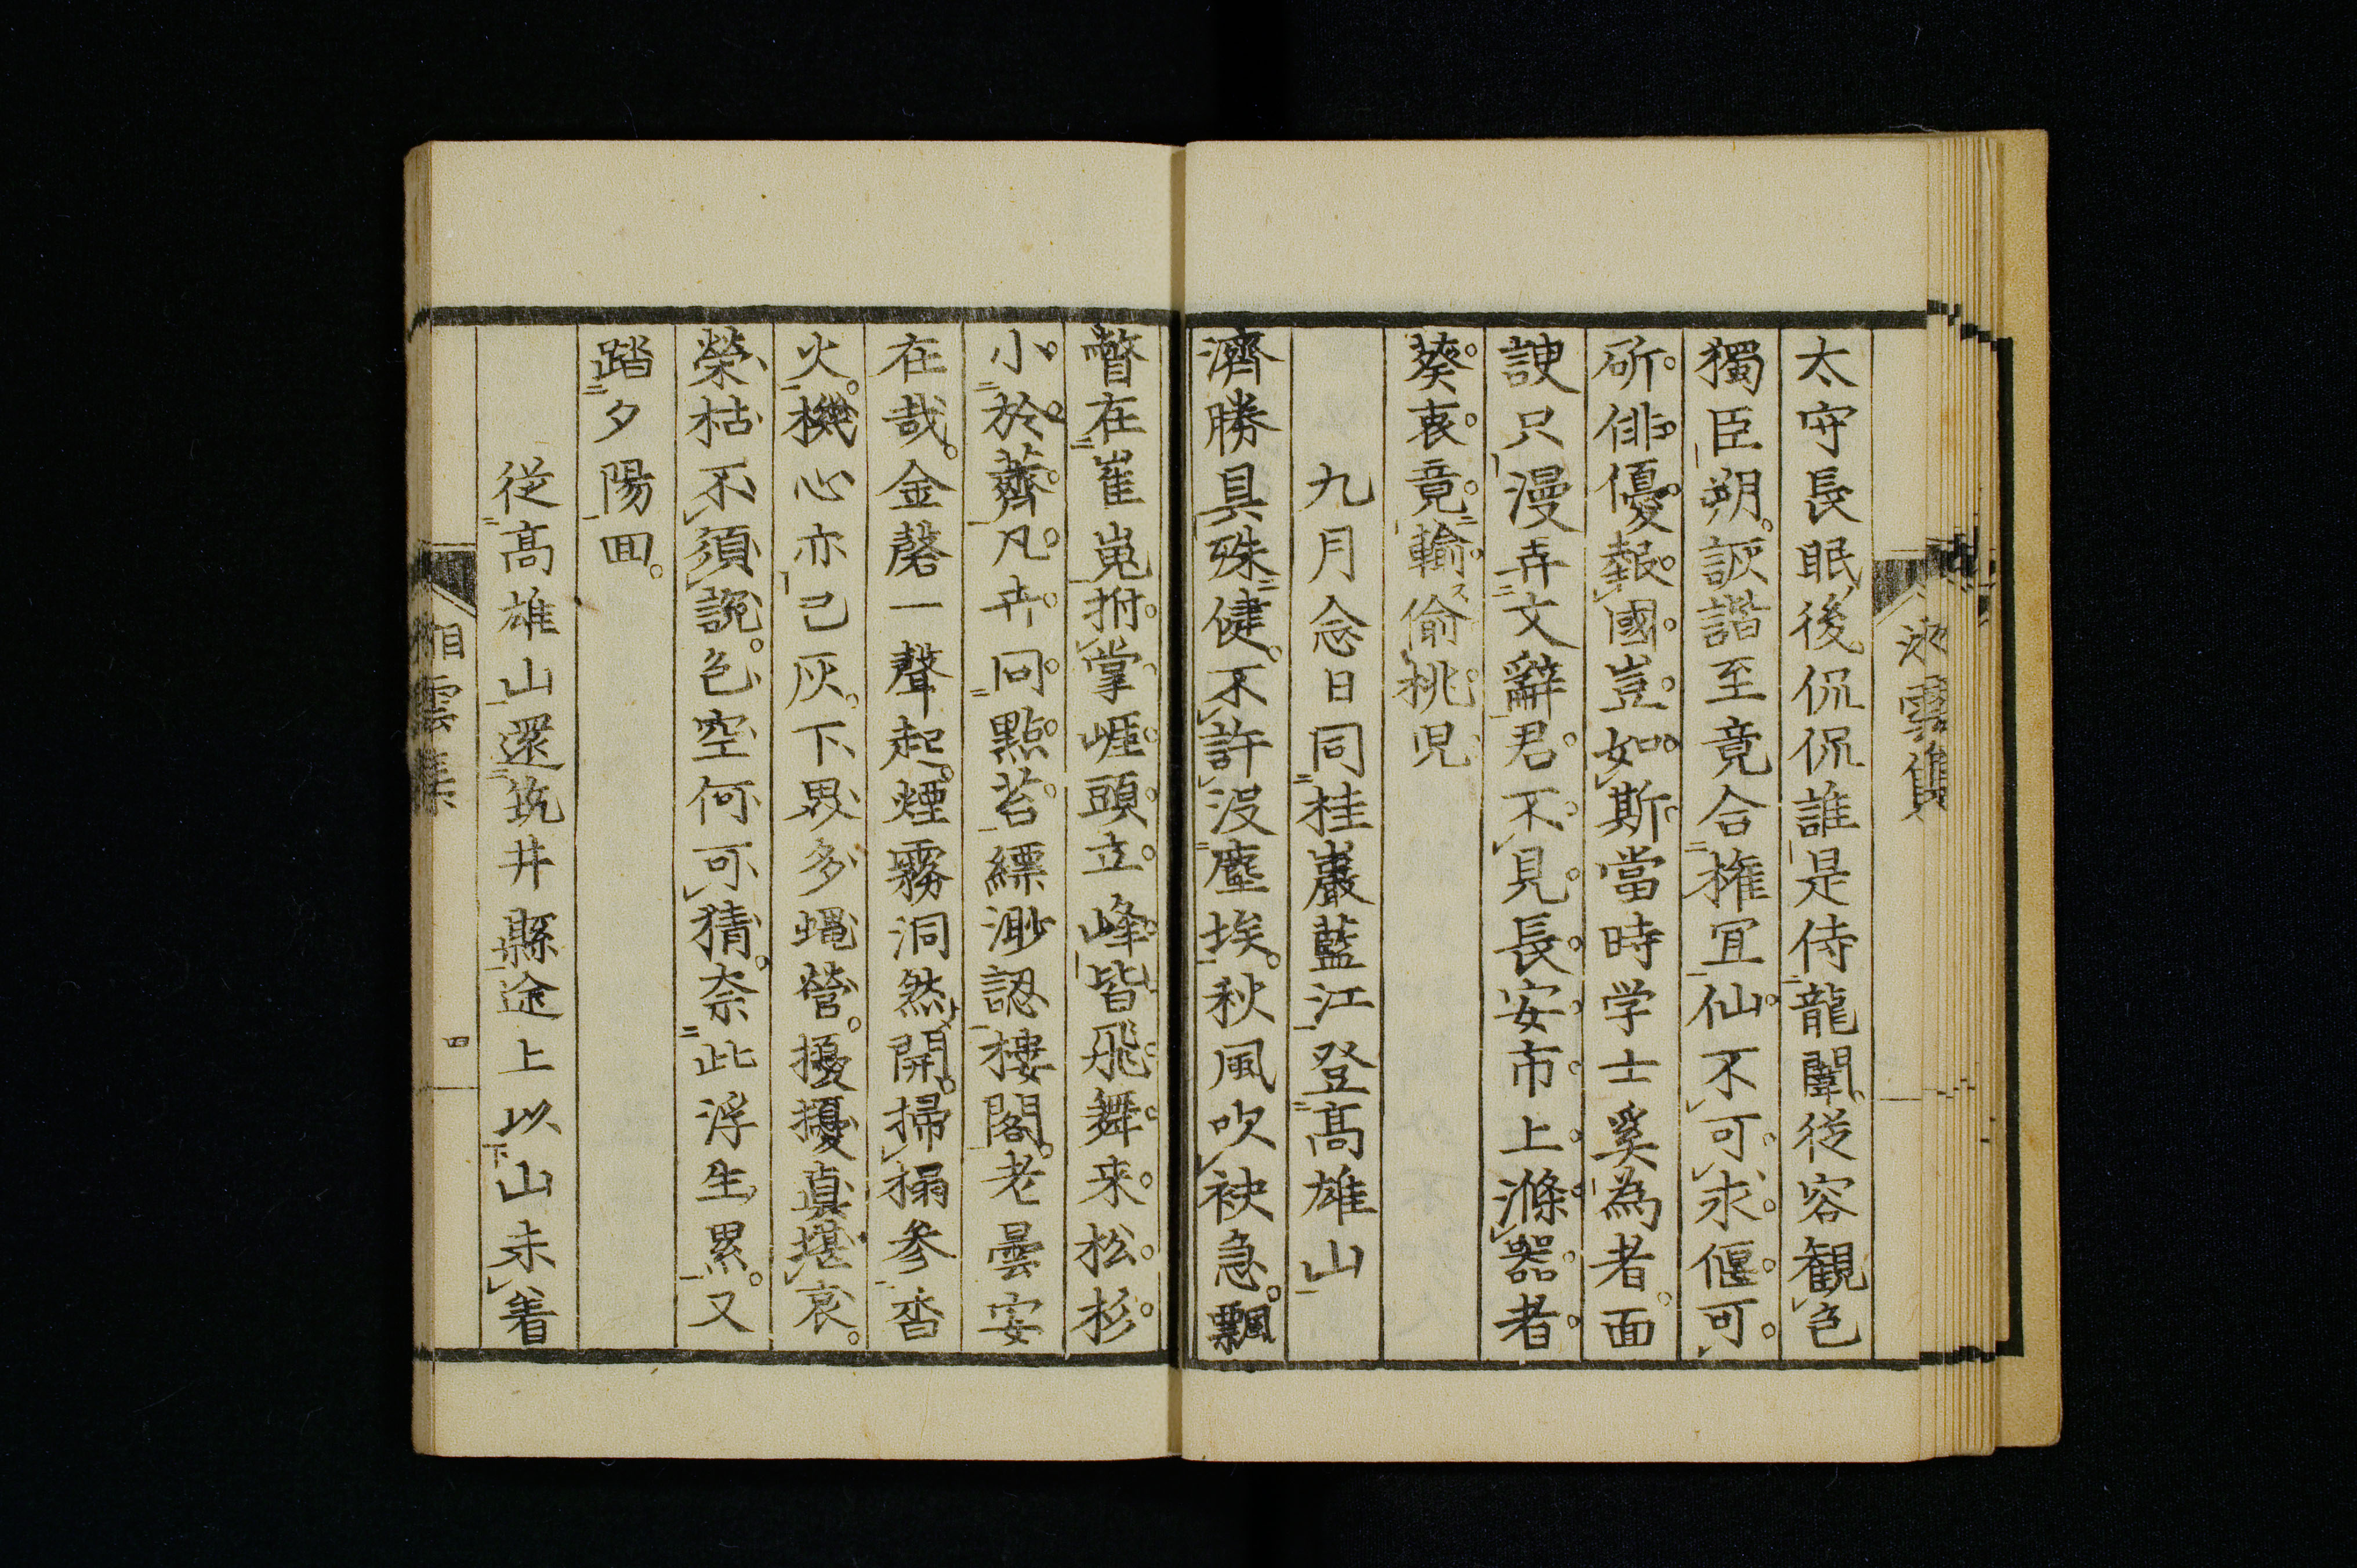 太守長眠後侃侃誰是侍龍闈従容観色
獨臣朔詼諧至竟合権冝仙不可求偃可
斫俳優報國豈如斯當時学士奚為者面
諛只漫弄文辭君不見長安市上滌器者
葵衷竟輸偷桃児
九月念日同桂巖藍江登髙雄山
濟勝具殊健不許没塵埃秋風吹袂急飄
瞥在崔嵬拊掌崕頭立峰皆飛舞来松杉
小於薺凡卉同點苔縹渺認楼閣老曇安
在哉金磬一聲起煙霧洞然開掃榻参香
火機心亦已灰下界多蝿營擾擾真堪哀
榮枯不須説色空何可猜奈此浮生累又
踏夕陽囬
従髙雄山還筑井縣途上以山未着
湘雲集
四